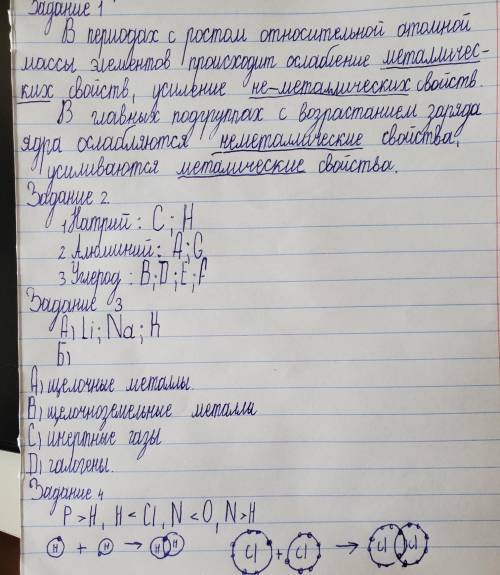 Задание 1
В периодах с ростом относительной атомной
массы элементов происходит ослабление металличес-
ких свойств, усиление не-металлических свойств.
В главных подгруппах с возрастанием заряда
ядра ослабляются неметаллические свойства,
усиливаются металические свойства.
Задание 2
1 Натрий: C; H
2 Алюминий: A; G
3 Углерод: B; D; E; F
Задание 3
А) Li; Na; K
Б)
A) щелочные металлы
B) щелочноземельные металлы
C) инертные газы
D) галогены.
Задание 4
P > H, H < Cl, N < O, N > H
H + H → H H Cl + Cl → Cl Cl